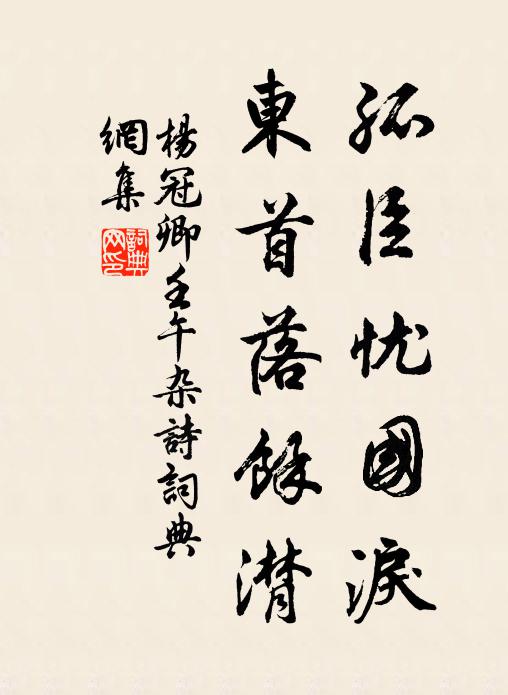 孤臣忧國淚
東首落餘潸
楊冠卿壬午杂詩詞典
網集
詞典網印